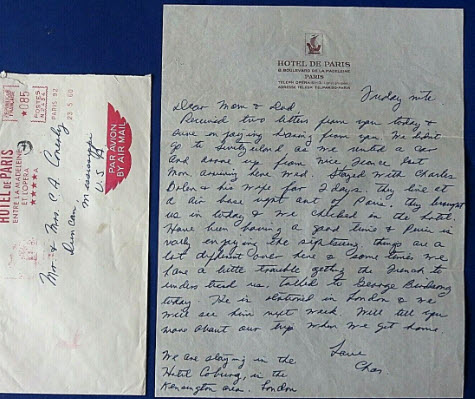 HOTEL DE PARIS
8, BOULEVARD DE LA MADELEINE
PARIS
Friday nite
Dear Mom & Dad,
Received two letters from you today &
sure enjoying hearing from you. We didn't
go to Switzerland as we rented a car
and drove up from Nice France last
Mon. arriving here Wed. Stayed with Charles
& his wife for 2 days. They live at
a air base right out of Paris. They brought
us in today & we checked in the hotel.
Have been having a good time & Paris is
really enjoying the sightseeing things are a
lot different over here & some times we
have a little trouble getting the French to
understand us. Talked to George
today. He is stationed in London & we
will see him next week. Will tell you
more about our trip when we get home.
Love
Chas
We are staying in the
Hotel Coburg, in the
Kensington area. London
HOTEL DE PARIS
ENTRE LA MADELEINE
ET L'OPERA
★★★★ A
085
POSTES
PARIS 92
PAR AVION
BY AIR MAIL
Mr & Mrs. C. A.
Duncan,
Mississippi
U.S.A.